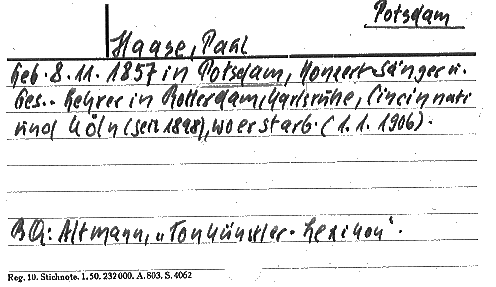 Potsdam
Haase, Paul
Geb. 8. 11. 1857 in Potsdam, Konzert-Sänger u.
Ges.- Lehrer in Rotterdam, Karlsruhe, Cincinnati
und Köln (seit 1898), wo er starb. (1. 1. 1906).
BQ: Altmann, „Tonkünstler-Lexikon".
Reg. 10. Stichnote. 1. 50. 232000. A. 803. S. 4062